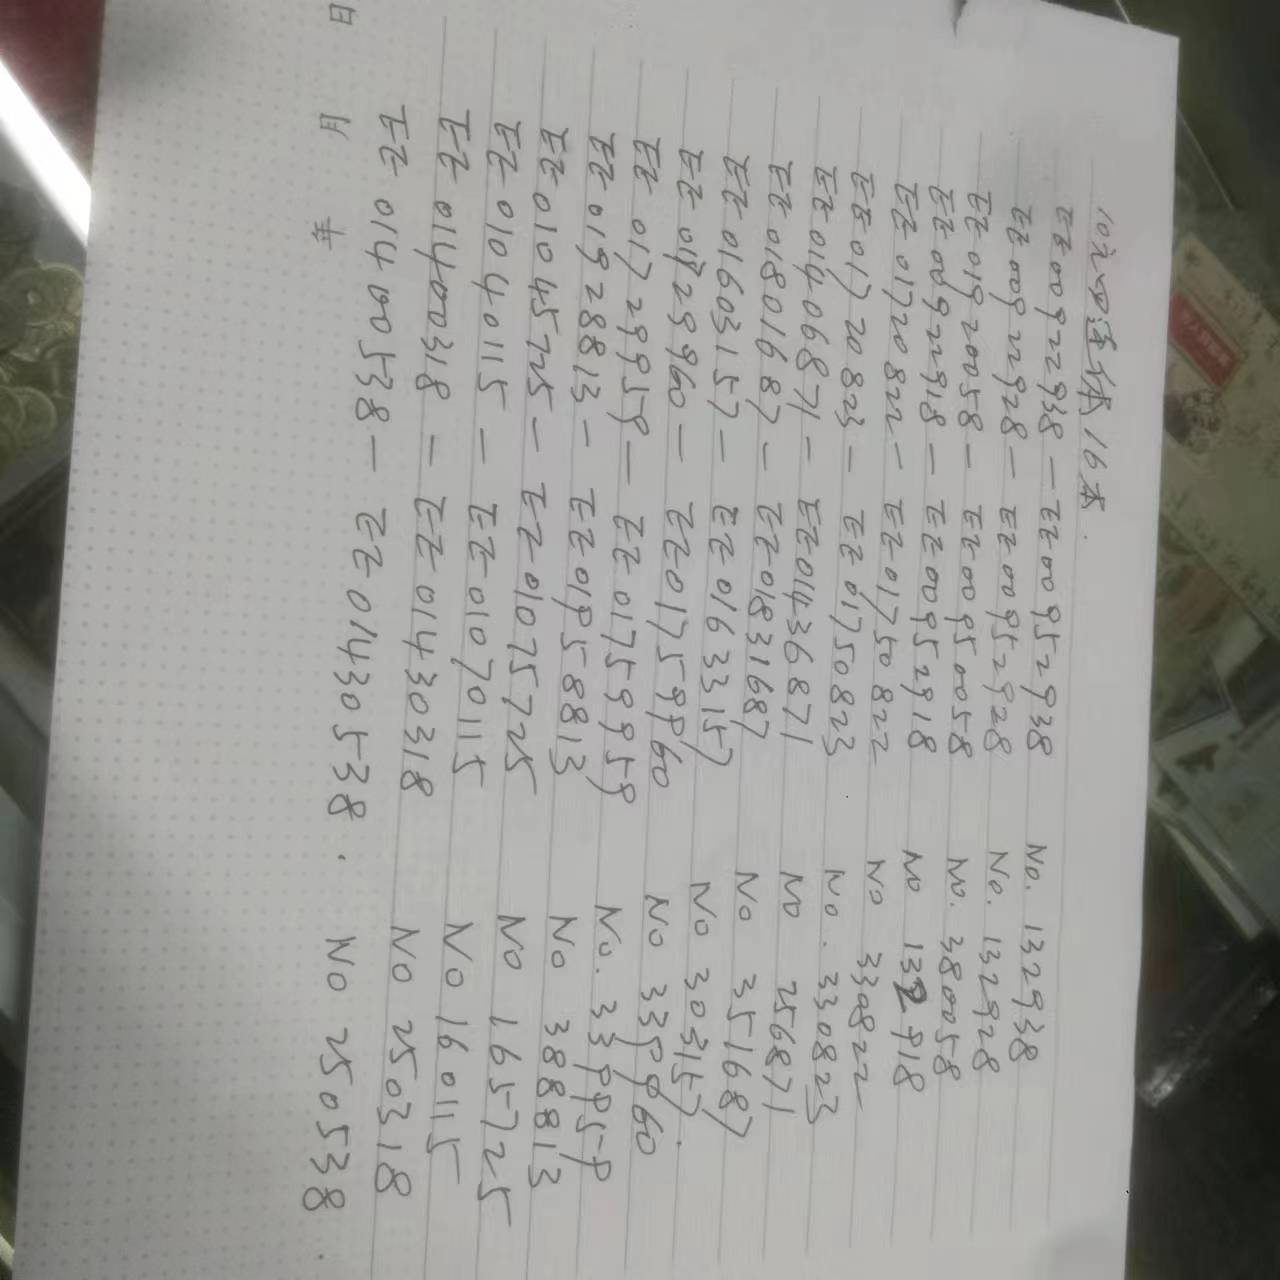 10元四连体16本.
EZ00922938 — EZ00952938 No. 132938
EZ00922928 — EZ00952928 No. 132928
EZ01920058 — EZ00950058 No. 380058
EZ00922918 — EZ00952918 No 132918
EZ01720822 — EZ01750822 No 330822
EZ01720823 — EZ01750823 No. 330823
EZ01406871 — EZ01436871 No 256871
EZ01801687 — EZ01831687 No 351687
EZ01603157 — EZ01633157 No 303157.
EZ01729960 — EZ01759960 No 339960
EZ01729959 — EZ01759959 No. 339959
EZ01928813 — EZ01958813 No 388813
EZ01045725 — EZ01075725 No 165725
EZ01040115 — EZ01070115 No 160115
EZ01400318 — EZ01430318 No 250318
EZ01400538 — EZ01430538. No 250538.
日 月 年